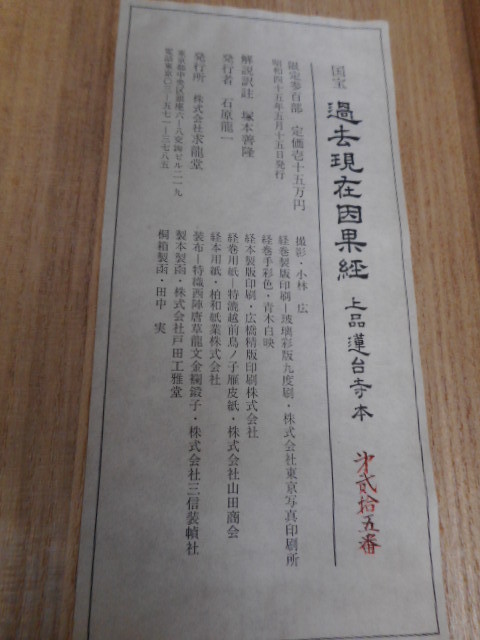 国宝 過去現在因果経 上品蓮台寺本 第貳拾五番
限定参百部 定価壱十五万円
昭和四十五年五月十五日発行
解説訳註 塚本善隆
発行者 石原龍一
発行所 株式会社求龍堂
東京都中央区銀座六—八 ビル二一九
電話東京〇三—五七一—三七八五
撮影・小林 広
経巻製版印刷—玻璃彩版九度刷・株式会社東京写真印刷所
経巻手彩色・青木白映
経本製版印刷・広橋精版印刷株式会社
経巻用紙—特漉越前鳥ノ子雁皮紙・株式会社山田商会
経本用紙・柏和紙業株式会社
装布—特織西陣唐草龍文金襴緞子・株式会社三信装幀社
製本製函・株式会社戸田工雅堂
桐箱製函・田中 実